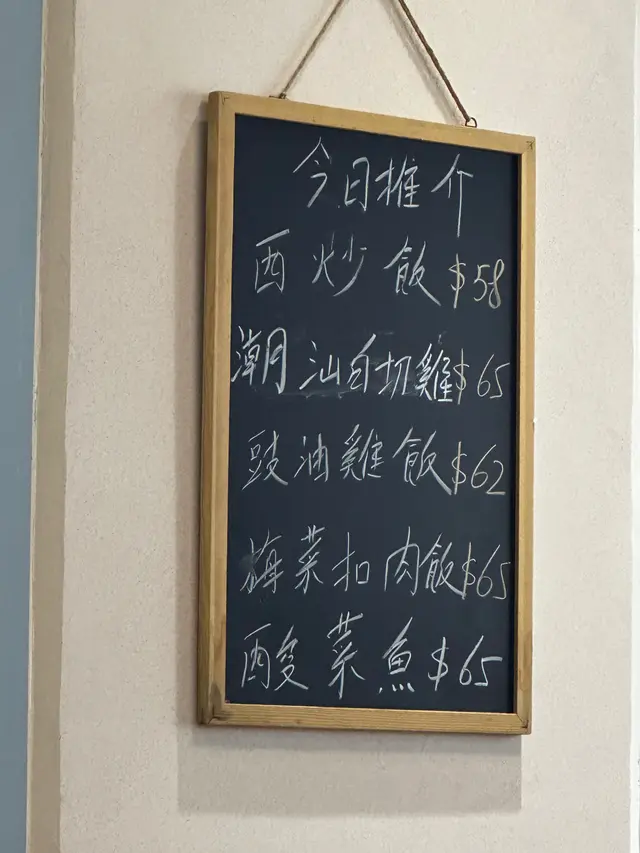 今日推介
西炒飯 $58
潮汕白切雞 $65
豉油雞飯 $62
梅菜扣肉飯 $65
酸菜魚 $65